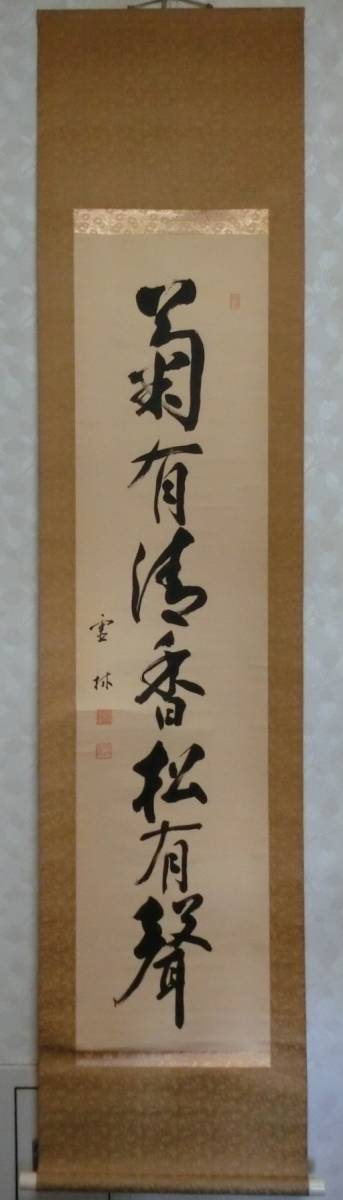 菊有清香松有聲
雪林